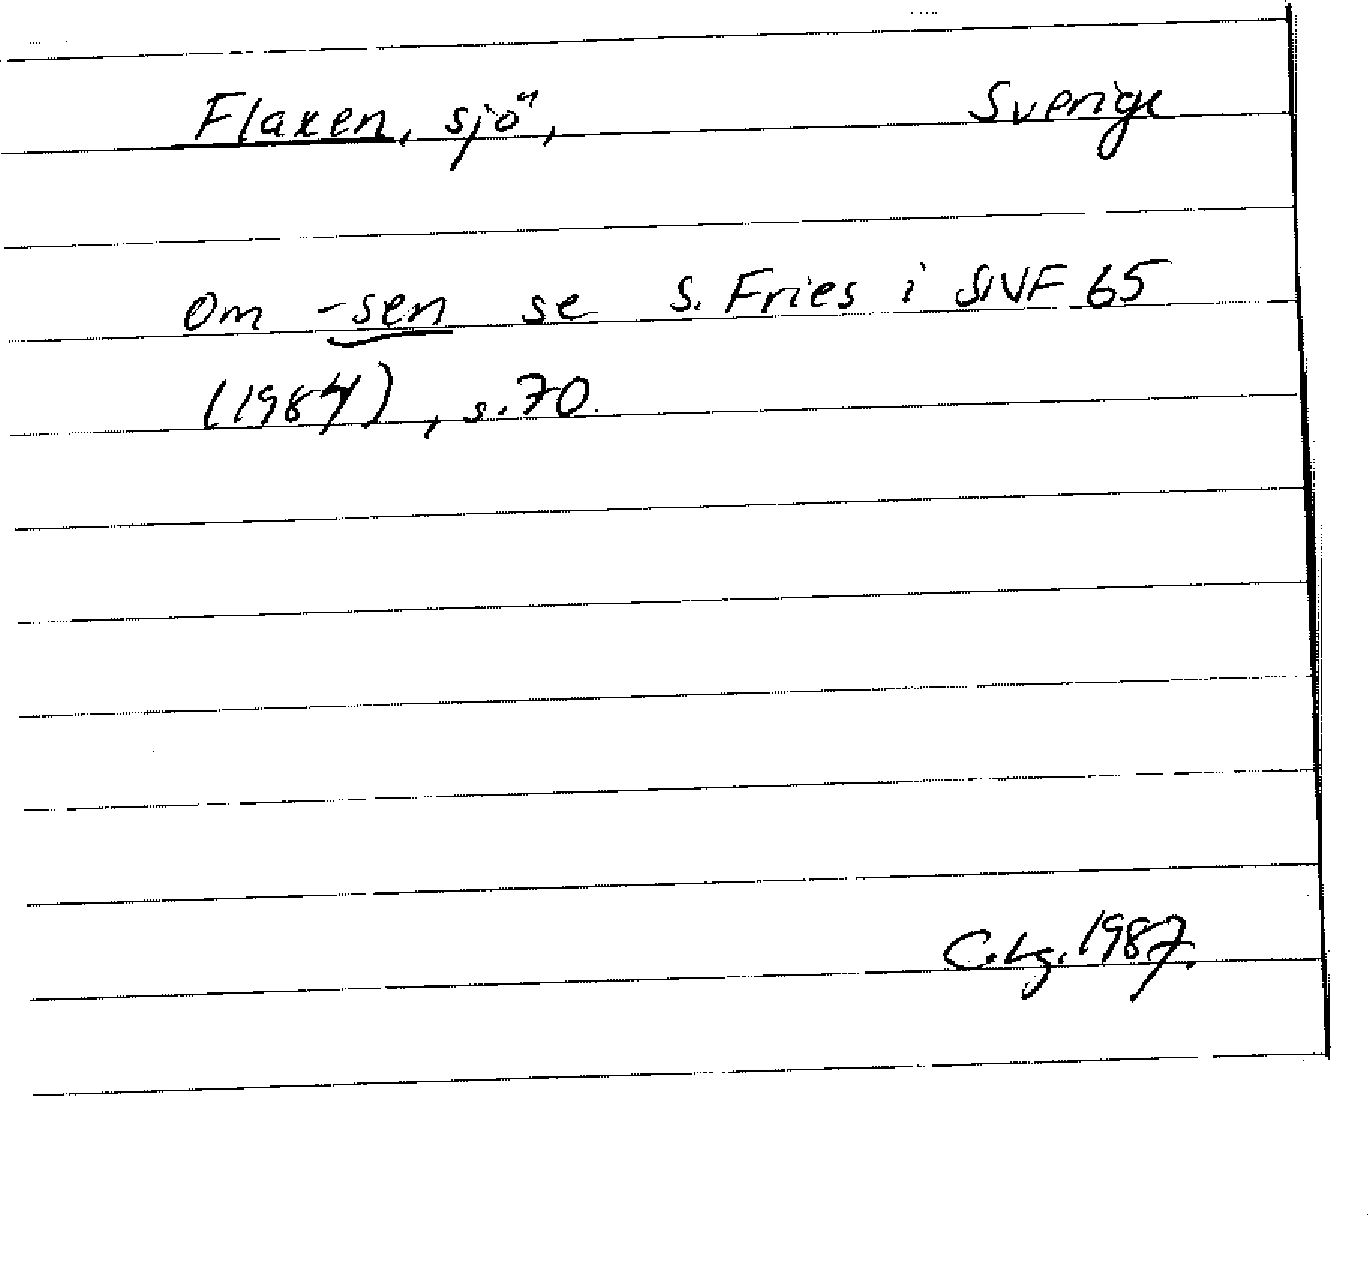 Flaxen, sjö, Sverige
Om -sen se S. Fries i SNF 65
(1984), s. 70.
C.Lg. 1987.